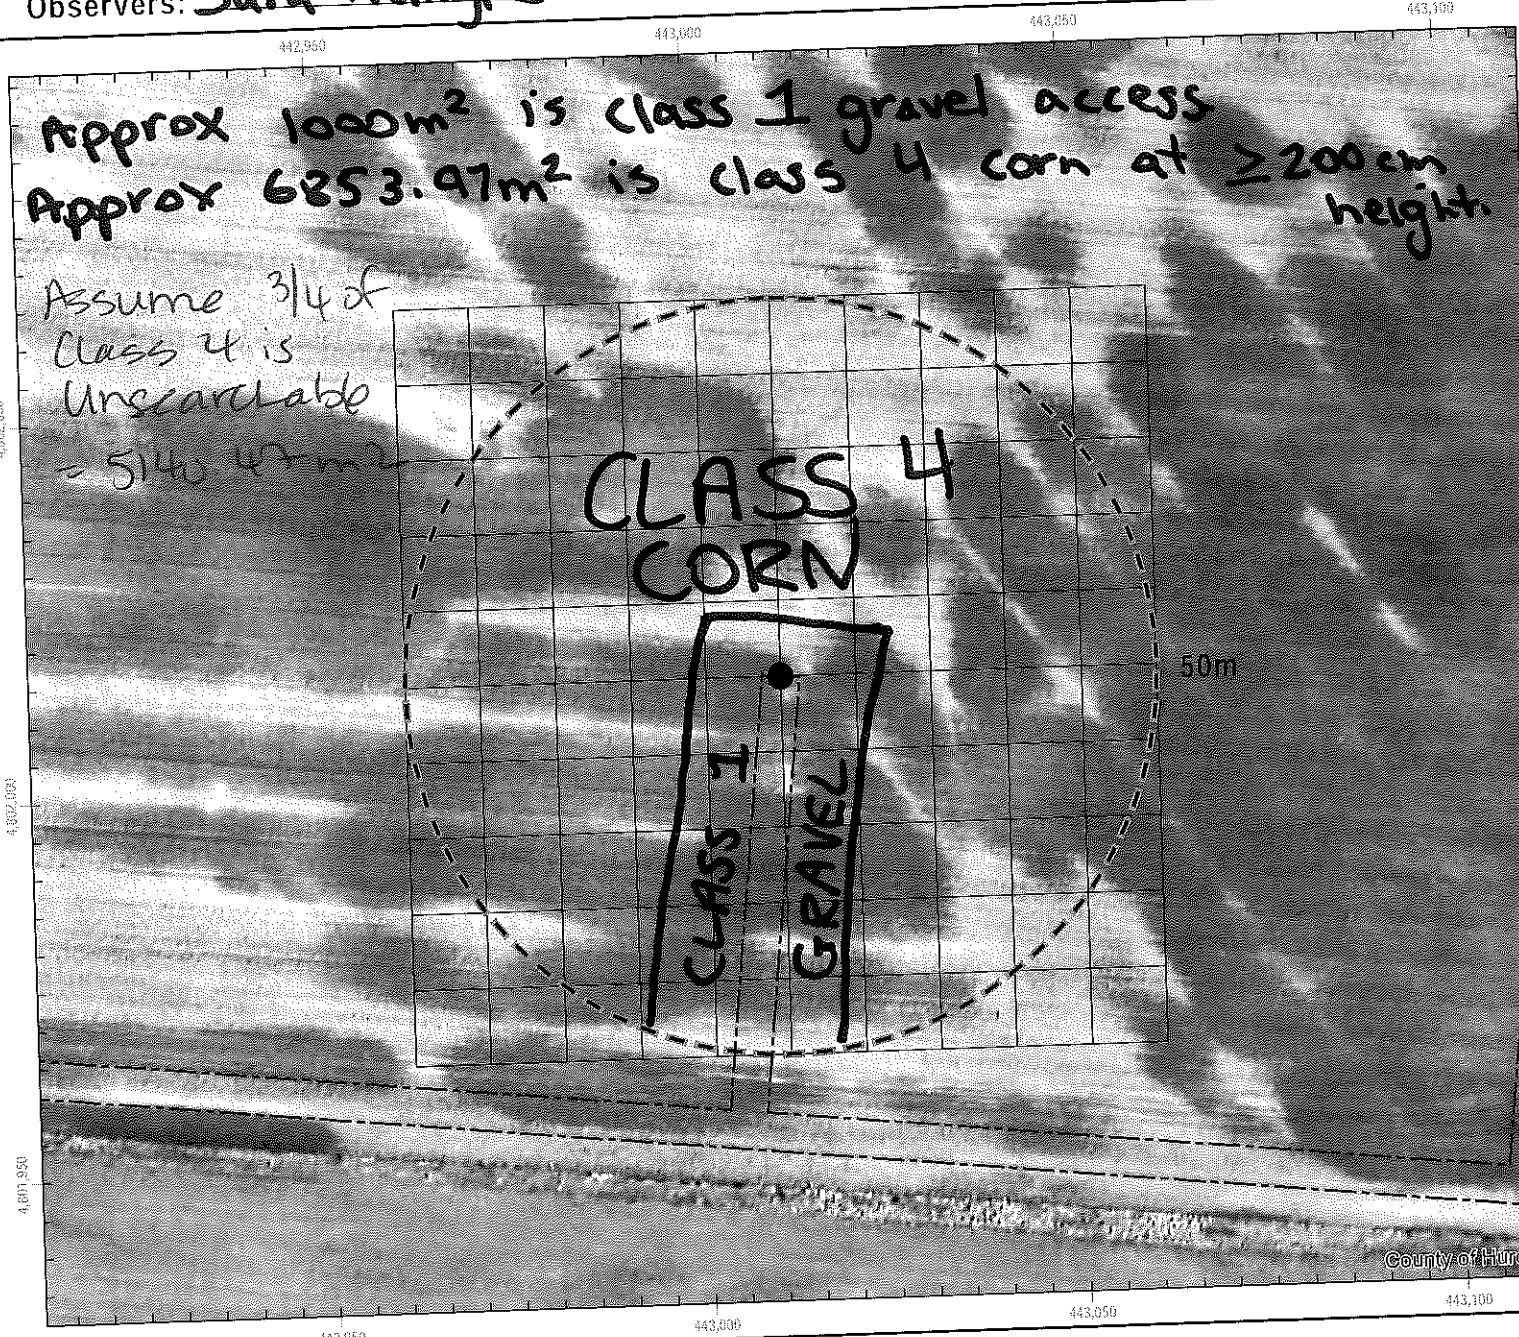 Observers:
442,950 443,000 443,050 443,100
Approx 1000m² is class 1 gravel access
Approx 6853.97m² is class 4 corn at ≥200cm
height.
Assume 3/4 of
Class 4 is
Unsearchable
= 5140.47m²
CLASS 4
CORN
50m
CLASS 1
GRAVEL
4,802,000
4,801,950
County of Huro
443,000 443,050 443,100